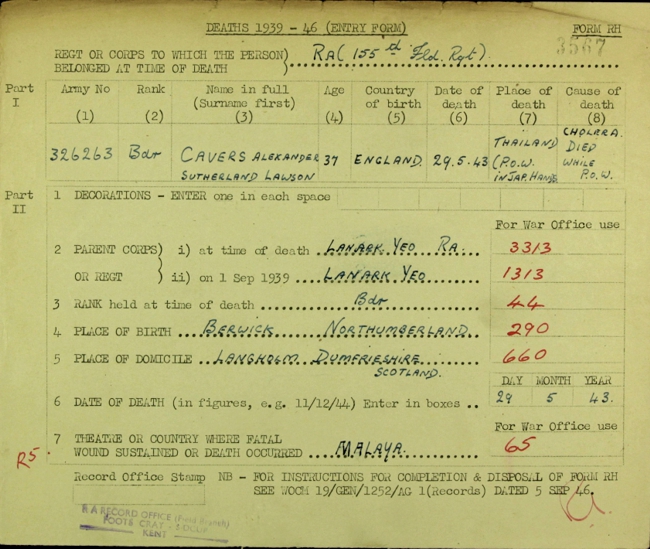 DEATHS 1939 - 46 (ENTRY FORM) FORM RH
3567
REGT OR CORPS TO WHICH THE PERSON) RA (155th Fld. Rgt).
BELONGED AT TIME OF DEATH )
Part I
Army No Rank Name in full (Surname first) Age Country of birth Date of death Place of death Cause of death
(1) (2) (3) (4) (5) (6) (7) (8)
326263 Bdr CAVERS ALEXANDER SUTHERLAND LAWSON 37 ENGLAND. 29.5.43 THAILAND (P.O.W. IN JAP. HANDS CHOLERA. DIED WHILE P.O.W.
Part II
1 DECORATIONS - ENTER one in each space
For War Office use
2 PARENT CORPS) i) at time of death LANARK YEO RA. 3313
OR REGT ) ii) on 1 Sep 1939 LANARK YEO 1313
3 RANK held at time of death Bdr 44
4 PLACE OF BIRTH BERWICK NORTHUMBERLAND 290
5 PLACE OF DOMICILE LANGHOLM DUMFRIESHIRE 660
SCOTLAND.
DAY MONTH YEAR
6 DATE OF DEATH (in figures, e.g. 11/12/44) Enter in boxes .. 29 5 43.
For War Office use
7 THEATRE OR COUNTRY WHERE FATAL
WOUND SUSTAINED OR DEATH OCCURRED MALAYA. 65
R5.
Record Office Stamp NB - FOR INSTRUCTIONS FOR COMPLETION & DISPOSAL OF FORM RH
SEE WOCM 19/GEN/1252/AG 1(Records) DATED 5 SEP 46.
R A RECORD OFFICE (Field Branch)
FOOTS CRAY - SIDCUP
KENT